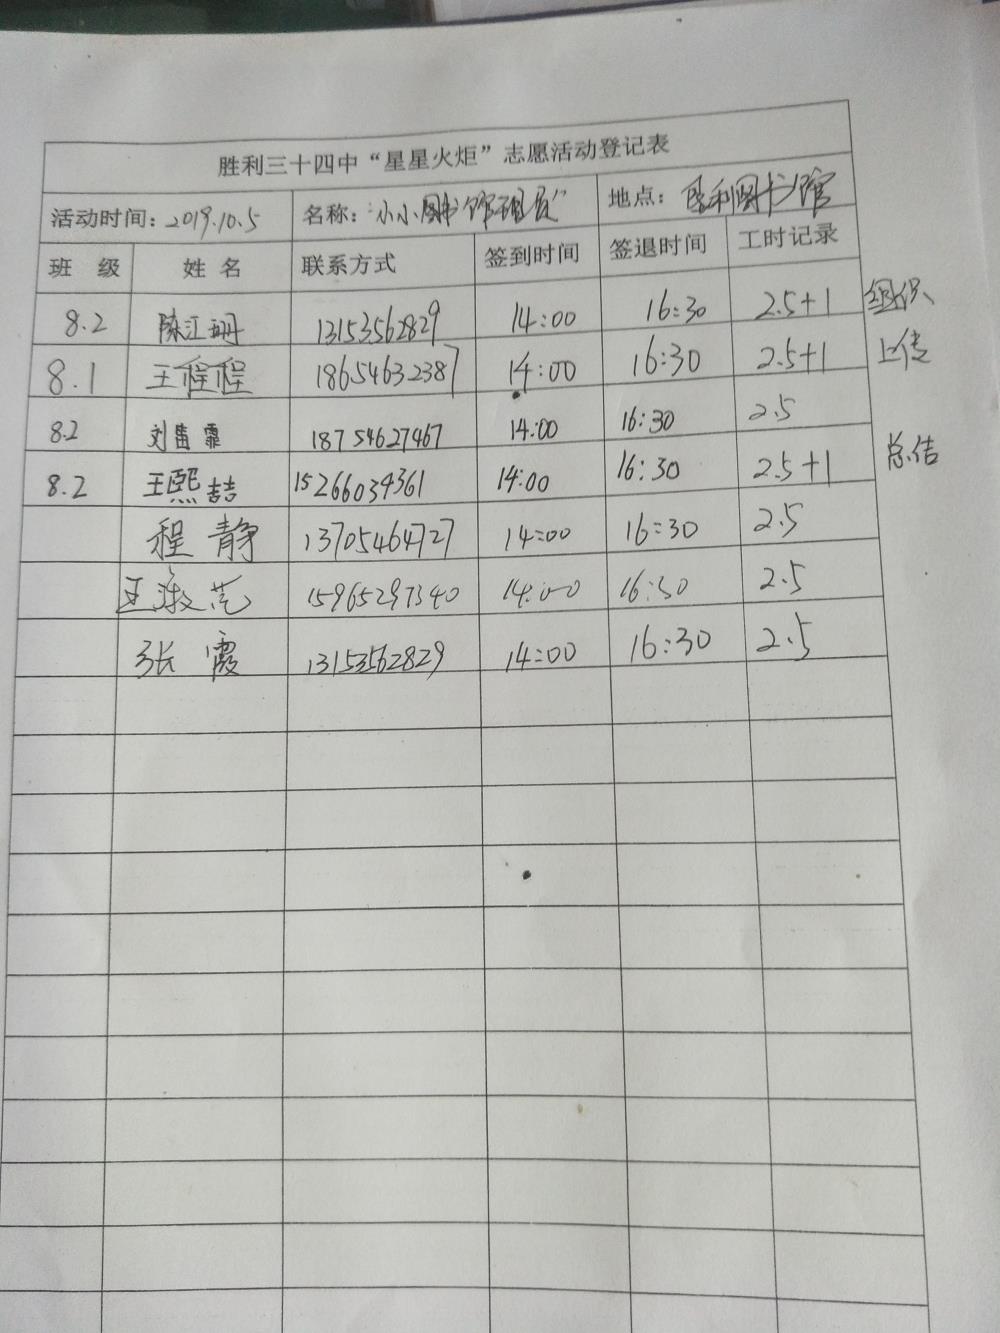 胜利三十四中“星星火炬”志愿活动登记表
活动时间：2019.10.5 名称：“小小图书馆理员” 地点：胜利图书馆
班 级 姓 名 联系方式 签到时间 签退时间 工时记录
8.2 陈江珊 13153562829 14:00 16:30 2.5+1 组织
8.1 王程程 18654632387 14:00 16:30 2.5+1 上传
8.2 刘 霏 18754627467 14:00 16:30 2.5
8.2 王熙喆 15266034361 14:00 16:30 2.5+1 总结
程 静 13705464727 14:00 16:30 2.5
王淑芹 15965297340 14:00 16:30 2.5
张 霞 13153562829 14:00 16:30 2.5